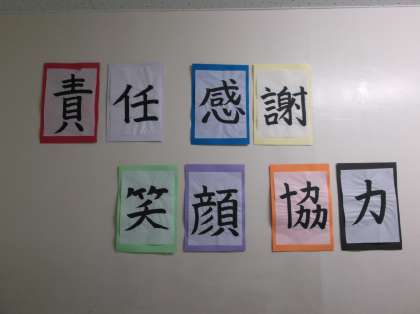 責任 感謝
笑顔 協力